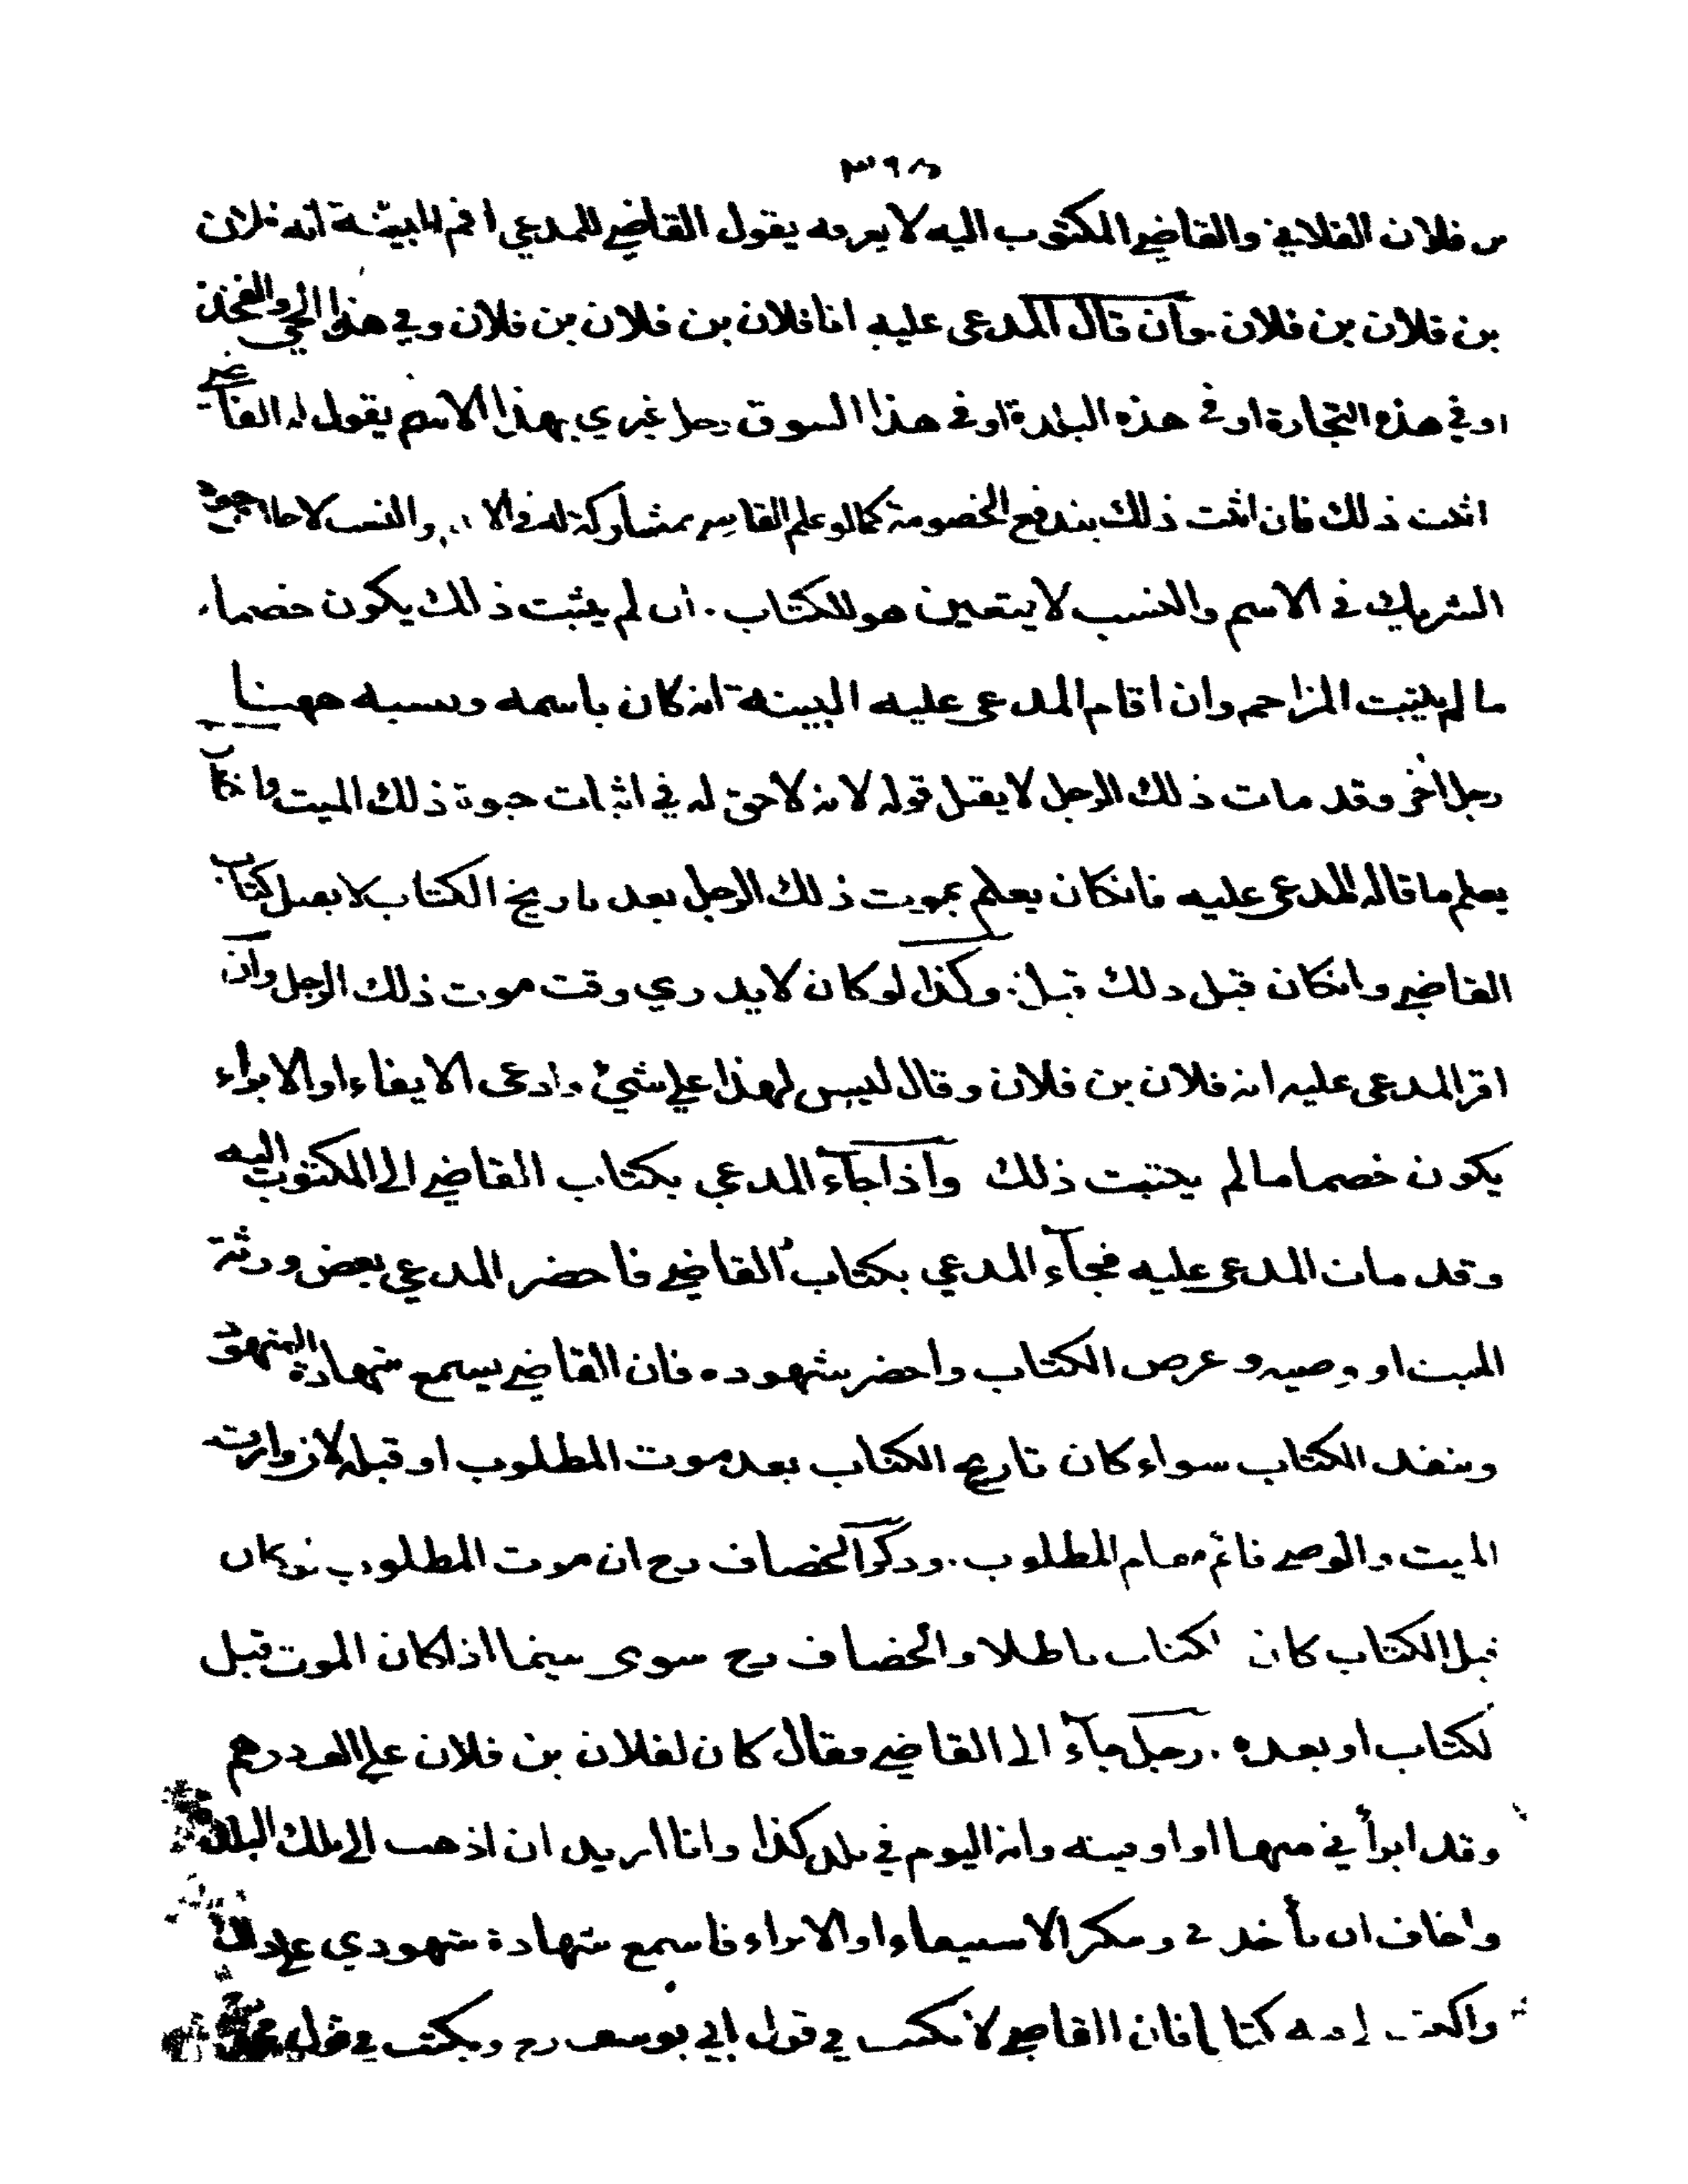 ٣٩٨
بن فلان الفلاني والقاضي المكتوب اليه لا يعرفه يقول القاضي للمدعي اقم البينة انه فلان
بن فلان بن فلان وان قال المدعى عليه انا فلان بن فلان بن فلان وفي هذا الحي والفخذ
او في هذه التجارة او في هذه البلدة او في هذا السوق رجل غيري بهذا الاسم يقول له القاضي
اثبت ذلك فان اثبت ذلك يندفع الخصومة كما لو علم القاضي بمشاركة له في الا والنسب لا حال وجود
الشريك في الاسم والنسب لا يتعين هو للكتاب . ان لم يثبت ذلك يكون خصما
ما لم يثبت المزاحم وان اقام المدعى عليه البينة انه كان باسمه ونسبه ههنا
رجل آخر وقد مات ذلك الرجل لا يقبل قوله لانه لا حق له في اثبات حيوة ذلك الميت
يعلم ما قاله المدعى عليه فانكان يعلم بموت ذلك الرجل بعد تاريخ الكتاب لا يقبل كتاب
القاضي وانكان قبل ذلك قبل . وكذا لو كان لا يدري وقت موت ذلك الرجل وان
اقر المدعى عليه انه فلان بن فلان وقال ليس لهذا علي شئ وادعى الايفاء او الابراء
يكون خصما ما لم يثبت ذلك واذا جآء المدعي بكتاب القاضي الى المكتوب اليه
وقد مات المدعى عليه فجآء المدعي بكتاب القاضي فاحضر المدعي بعض ورثة
الميت او وصيه وعرض الكتاب واحضر شهوده فان القاضي يسمع شهادة الشهود
وينفذ الكتاب سواء كان تاريخ الكتاب بعد موت المطلوب او قبله لان وارث
الميت والوصي قائم مقام المطلوب . وذكر الخصاف رح ان موت المطلوب لو كان
قبل الكتاب كان الكتاب باطلا والخصاف رح سوى بينما اذا كان الموت قبل
لكتاب او بعده . رجل جآء الى القاضي وقال كان لفلان بن فلان علي الف درهم
وقد ابرأني منها او اوفيته وانه اليوم في بلد كذا وانا اريد ان اذهب الى تلك البلدة
واخاف ان يأخذني وينكر الاستيفاء او الابراء فاسمع شهادة شهودي على ذلك
واكتب كتابا فان القاضي لا يكتب في قول ابي يوسف رح ويكتب في قول محمد